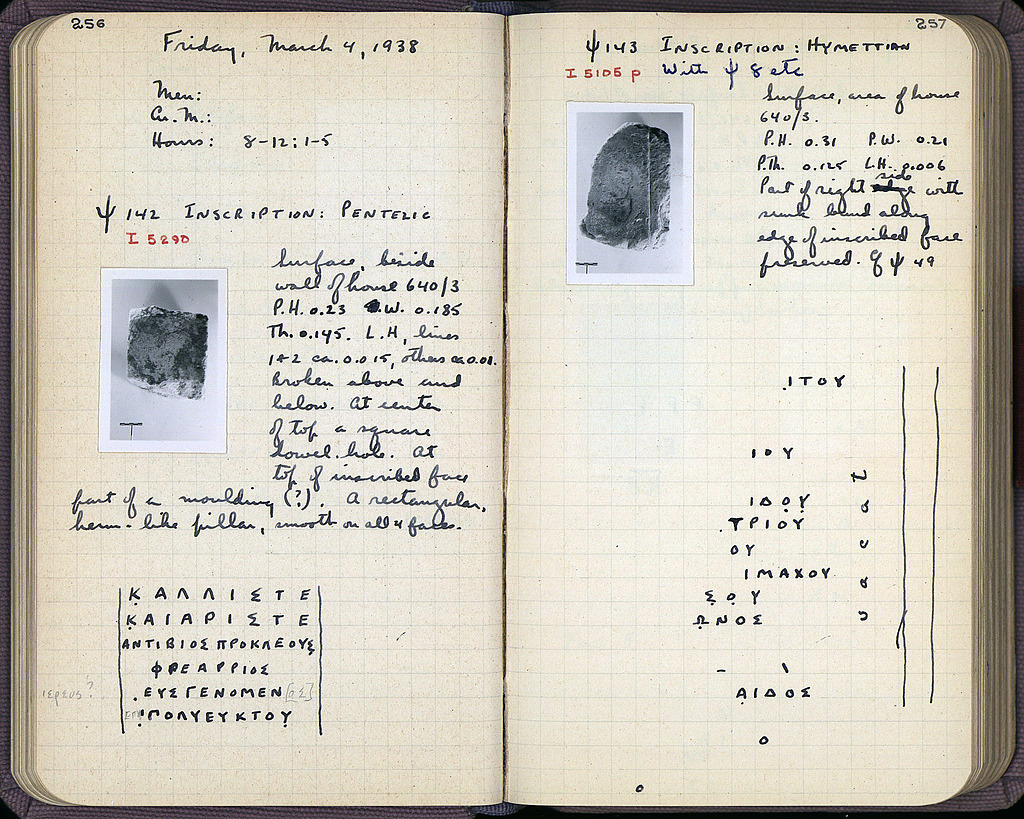 256
Friday, March 4, 1938
Men:
Au. M.:
Hours: 8-12; 1-5
ψ 142 INSCRIPTION: PENTELIC
I 5290
Surface, beside
wall of house 640/3
P.H. 0.23 W. 0.185
Th. 0.145. L.H, lines
1+2 ca. 0.015, others ca 0.01.
Broken above and
below. At center
of top a square
dowel hole. At
top of inscribed face
part of a moulding (?). A rectangular,
herm-like pillar, smooth on all 4 faces.
ΚΑΛΛΙΣΤΕ
ΚΑΙΑΡΙΣΤΕ
ΑΝΤΙΒΙΟΣΠΡΟΚΛΕΟΥΣ
ΦΡΕΑΡΡΙΟΣ
ιερευς? .ΕΥΣΓΕΝΟΜΕΝ[ΟΣ]
ΠΟΛΥΕΥΚΤΟΥ
257
ψ 143 INSCRIPTION: HYMETTIAN
I 5105 p With ψ 8 etc
Surface, area of house
640/3.
P.H. 0.31 P.W. 0.21
P.Th. 0.125 L.H. 0.006
Part of right side with
sunk band along
edge of inscribed face
preserved. Cf ψ 49
ΙΤΟΥ
ΙΟΥ
ΙΔΟΥ
ΤΡΙΟΥ
ΟΥ
ΙΜΑΧΟΥ
ΣΟΥ
ΩΝΟΣ
ΑΙΔΟΣ
Ο
Ο